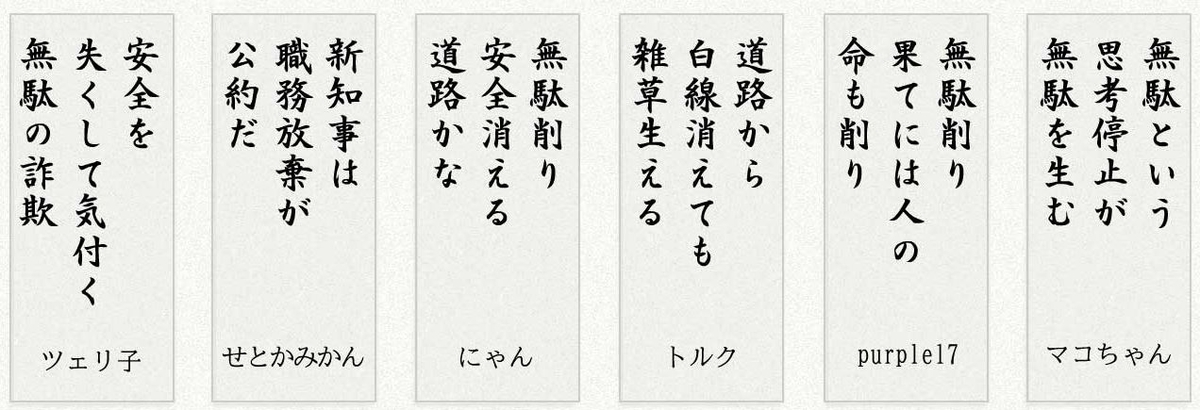 無駄という
思考停止が
無駄を生む
マコちゃん
無駄削り
果てには人の
命も削り
purple17
道路から
白線消えても
雑草生える
トルク
無駄削り
安全消える
道路かな
にゃん
新知事は
職務放棄が
公約だ
せとかみかん
安全を
失くして気付く
無駄の詐欺
ツェリ子